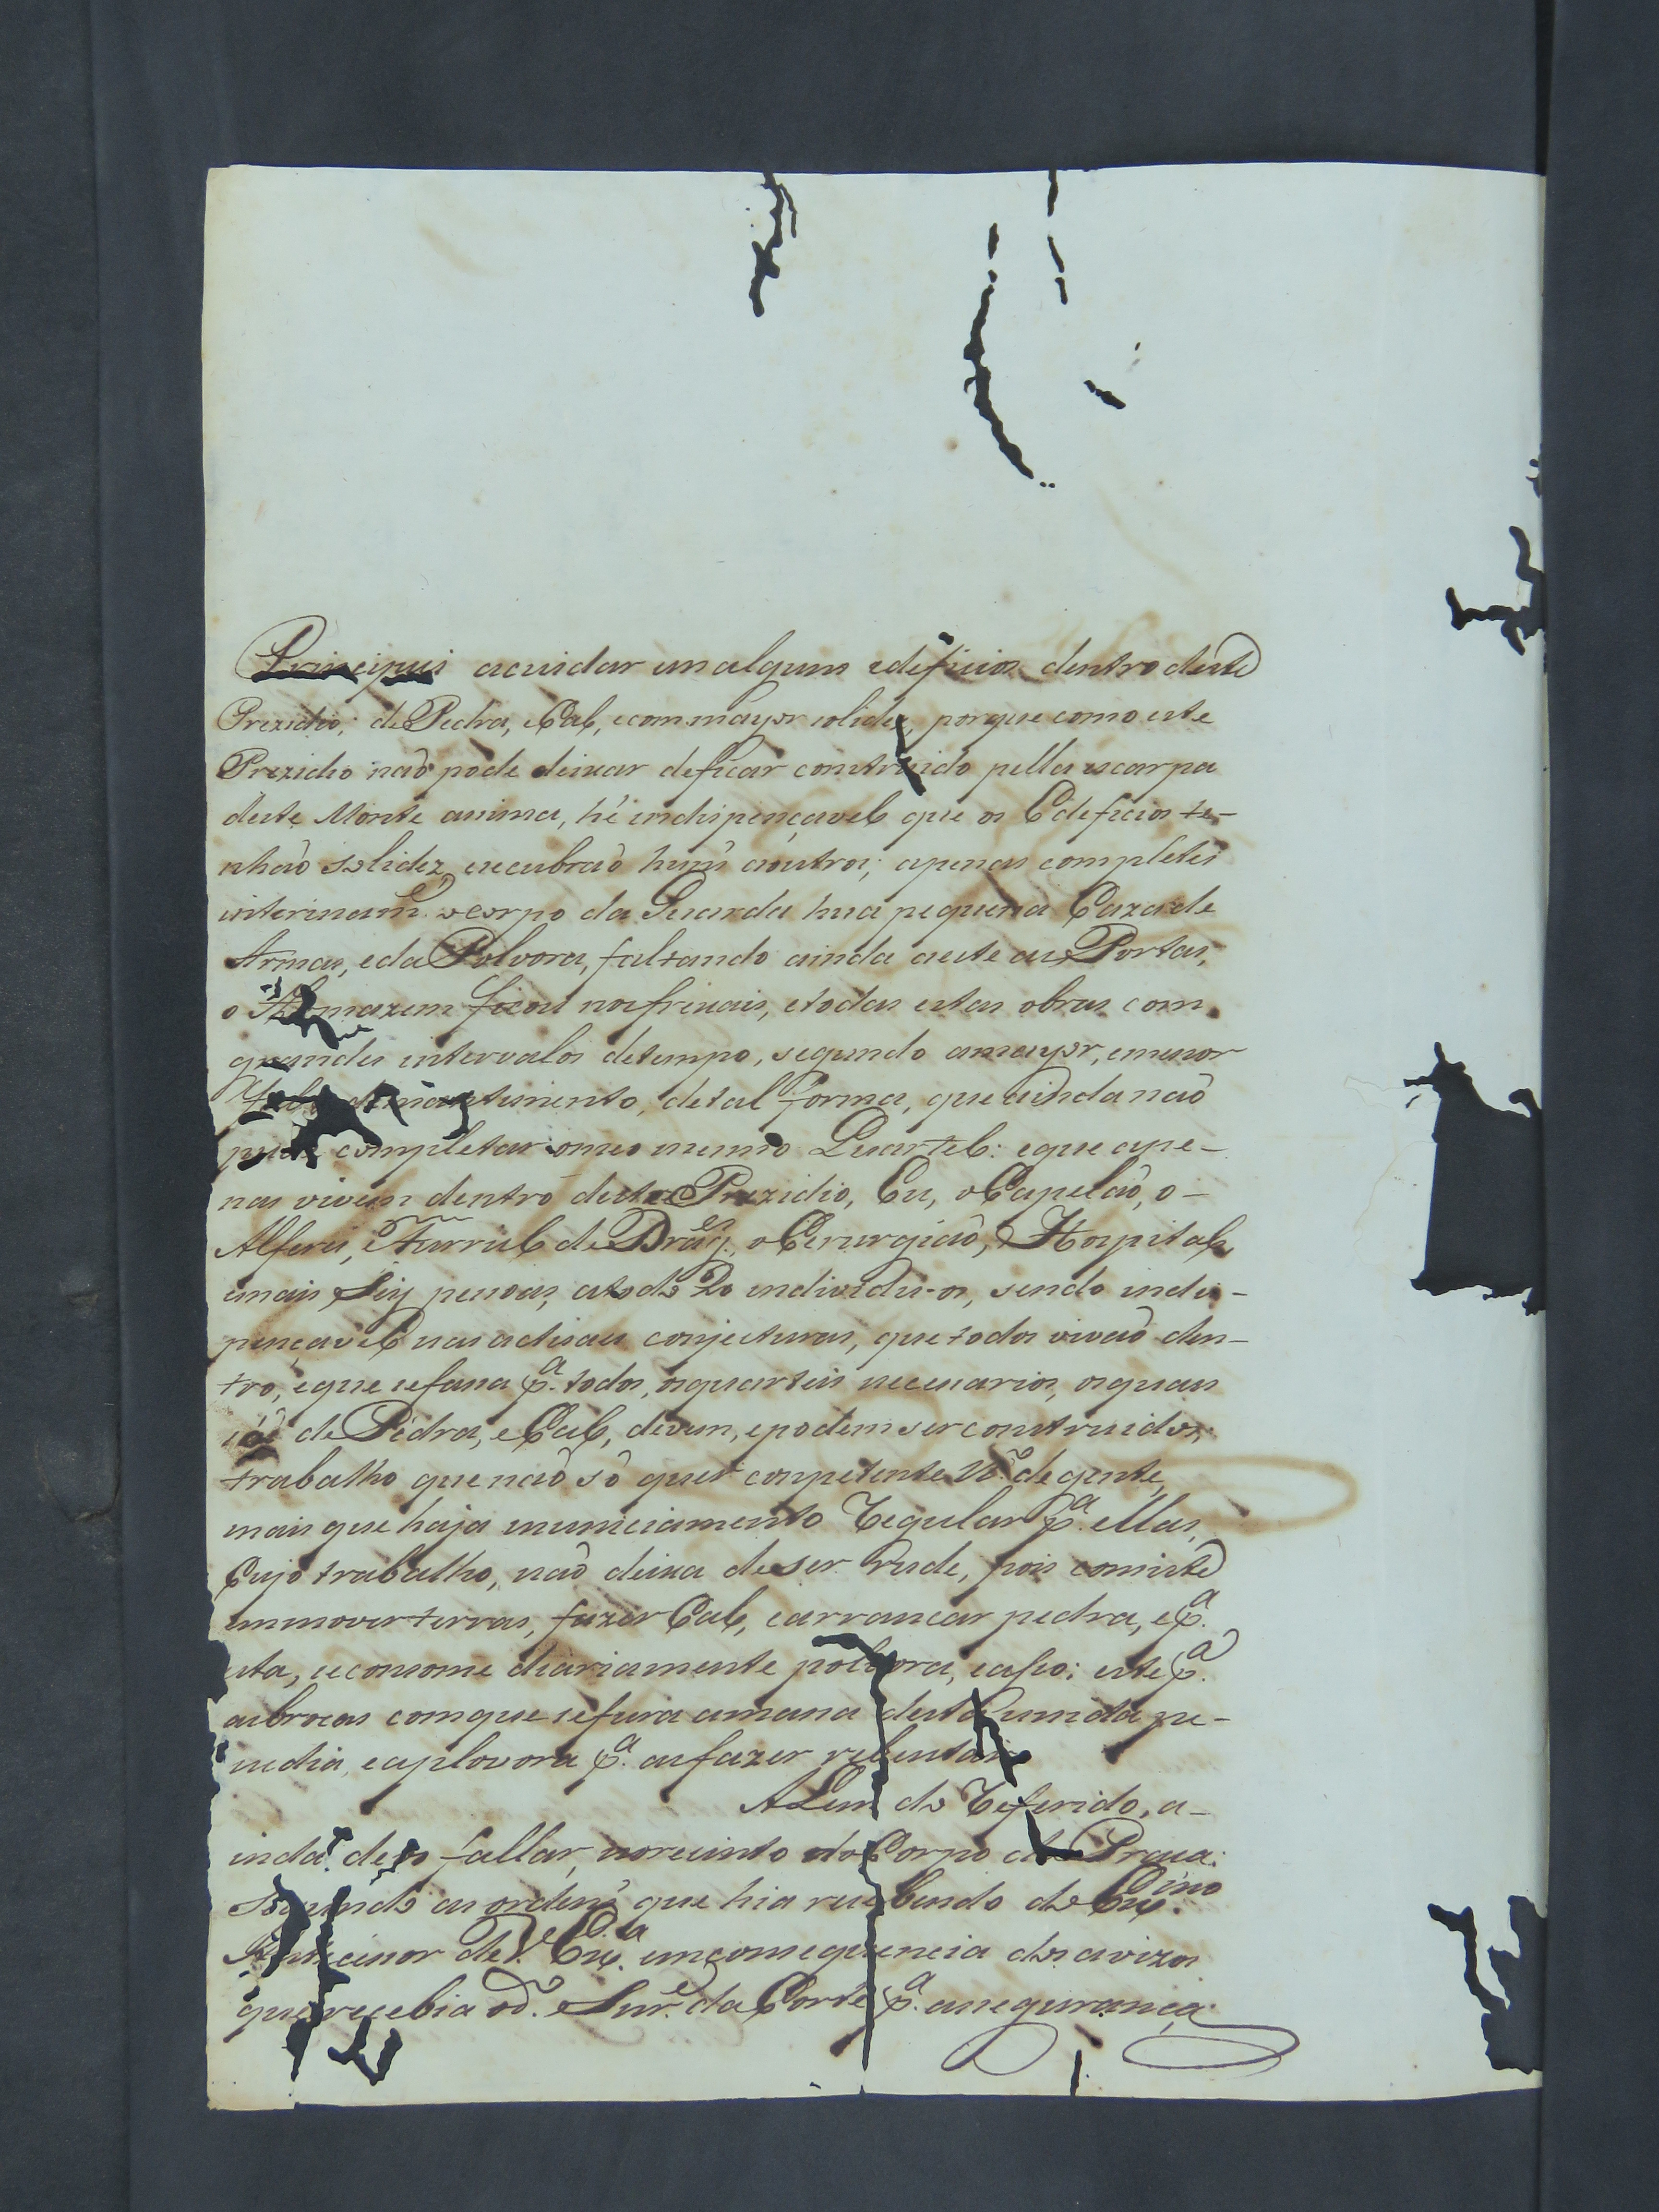 Principiei acuidar em alguns edificios dentro deste
Prezidio; de Pedra, e Cal, e com mayor solidez, porque como este
Prezidio naõ pode deixar deficar construido pella escarpa
deste Monte assima, hé indispençavel que os Edeficios te-
nhaõ solidez, e se cubraõ huñs aoutros; apenas completei
interinam.e o Corpo da Guarda hua pequena Caza de
Armas, e da Polvora, faltando ainda a este as Portas,
o Almazem ficou nos frixais, e todas estas obras com
grandes intervalos detempo, segundo amayor, emenor
falta de mantimento, detal forma, que ainda naõ
pude completar omeo mesmo Quartel: eque ape-
nas vivem dentro deste Prezidio, Eu, o Capelaõ, o
Alferes, e Furriel de Drag.es, o Cirurgiaõ, Hospital,
emais Seis pessoas, atodo 20 individuos, sendo indis-
pençavel nas actuaes conjecturas, que todos vivaõ den-
tro, eque sefassa p.a todos, os quarteis necessarios, osquais
só de Pedra, e Cal, devem, epodem ser construidos;
trabalho que naõ só quer conpetente N.o de gente,
mais que haja municiamento Regular p.a ellas,
Cujo trabalho, naõ deixa de ser Rude, pois consiste
em mover terras, fazer Cal, e arrancar pedra, e p.a
esta, se consome diariamente polvora, easso; este p.a
as brocas com que se fura a massa desta Rumida pe-
nedia, e a plovora p.a as fazer rebentar
ALem do Referido, a-
inda devo fallar, no recinto do Corpo da Praça:
Segundo as ordens que hia recebendo do Ex.mo
Antecessor de V. Ex.a em consequencia dos avizos
que recebia o d.o Snr.e da Corte p.a a segurança